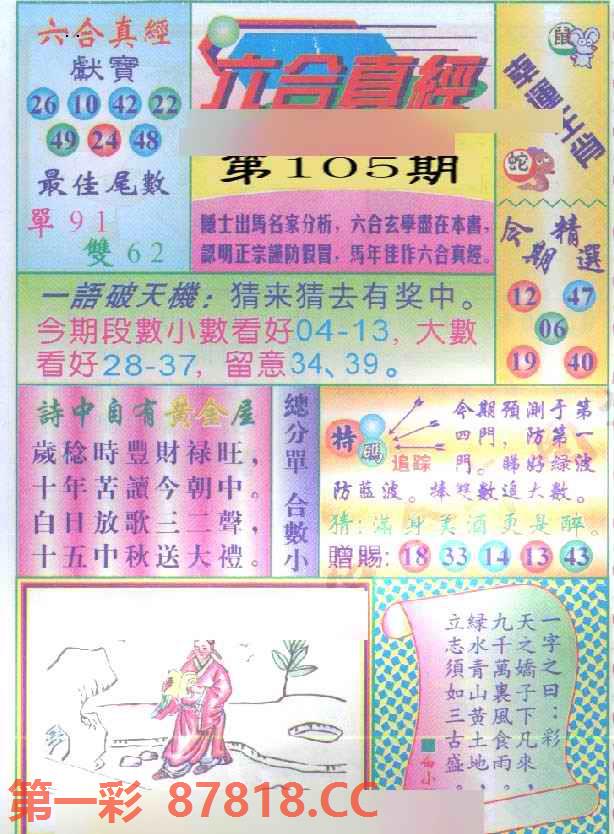 六合真經
獻寶
26 10 42 22
49 24 48
最佳尾數
單 9 1
雙 6 2
六合真經
第105期
隱士出馬名家分析，六合玄學盡在本書，
認明正宗謹防假冒，馬年佳作六合真經。
鼠
幸運生肖
蛇
今期精選
12 47
06
19 40
一語破天機：猜来猜去有奖中。
今期段數小數看好04-13，大數
看好28-37，留意34、39。
詩中自有黃金屋
歲稔時豐財禄旺，
十年苦讀今朝中。
白日放歌三二聲，
十五中秋送大禮。
總分單 合數小
特碼
追踪
今期預測于第
四門，防第一
門。睇好緑波
防藍波。捧雙數追大數。
猜：滿身美酒更是醉。
贈賜：18 33 14 13 43
一字之曰：彩
天之嬌子下凡來，
九千萬裏風食雨。
緑水青山黃土地，
立志須如三古盛。
第一彩 87818.CC